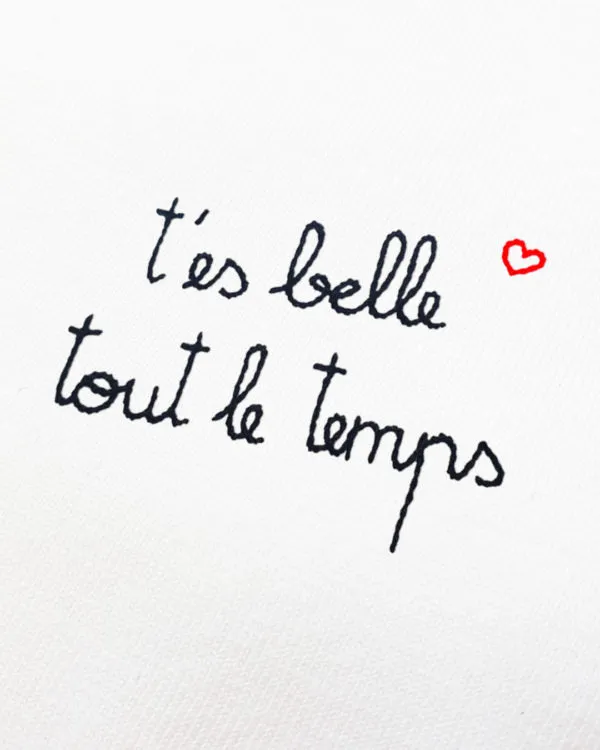 t'es belle
tout le temps